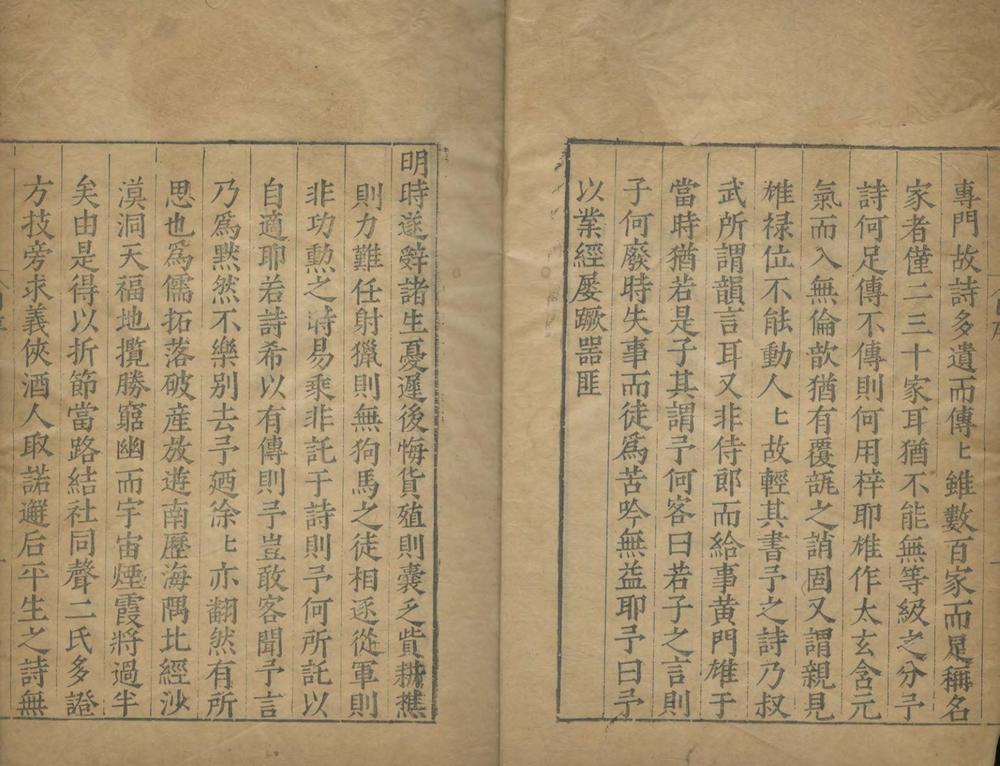 專門故詩多遺而傳〻錐數百家而足稱名
家者僅二三十家耳猶不能無等級之分予
詩何足傳不傳則何用梓耶雄作太玄含元
氣而入無倫歆猶有覆瓿之誚固又謂親見
雄祿位不能動人〻故輕其書予之詩乃叔
武所謂韻言耳又非侍郎而給事黃門雄于
當時猶若是子其謂予何客曰若子之言則
子何廢時失事而徒爲苦吟無益耶予曰予
以業經屢蹶噐匪
明時遂辭諸生憂遲後悔貨殖則囊乏貲耕樵
則力難任射獵則無狗馬之徒相逐從軍則
非功勲之時易乘非託于詩則予何所託以
自適耶若詩希以有傳則予豈敢客聞予言
乃爲默然不樂别去予廼徐〻亦翻然有所
思也爲儒拓落破産放遊南歷海隅北經沙
漠洞天福地攬勝窮幽而宇宙煙霞將過半
矣由是得以折節當路結社同聲二氏多證
方技旁求義俠酒人取諾邂后平生之詩無